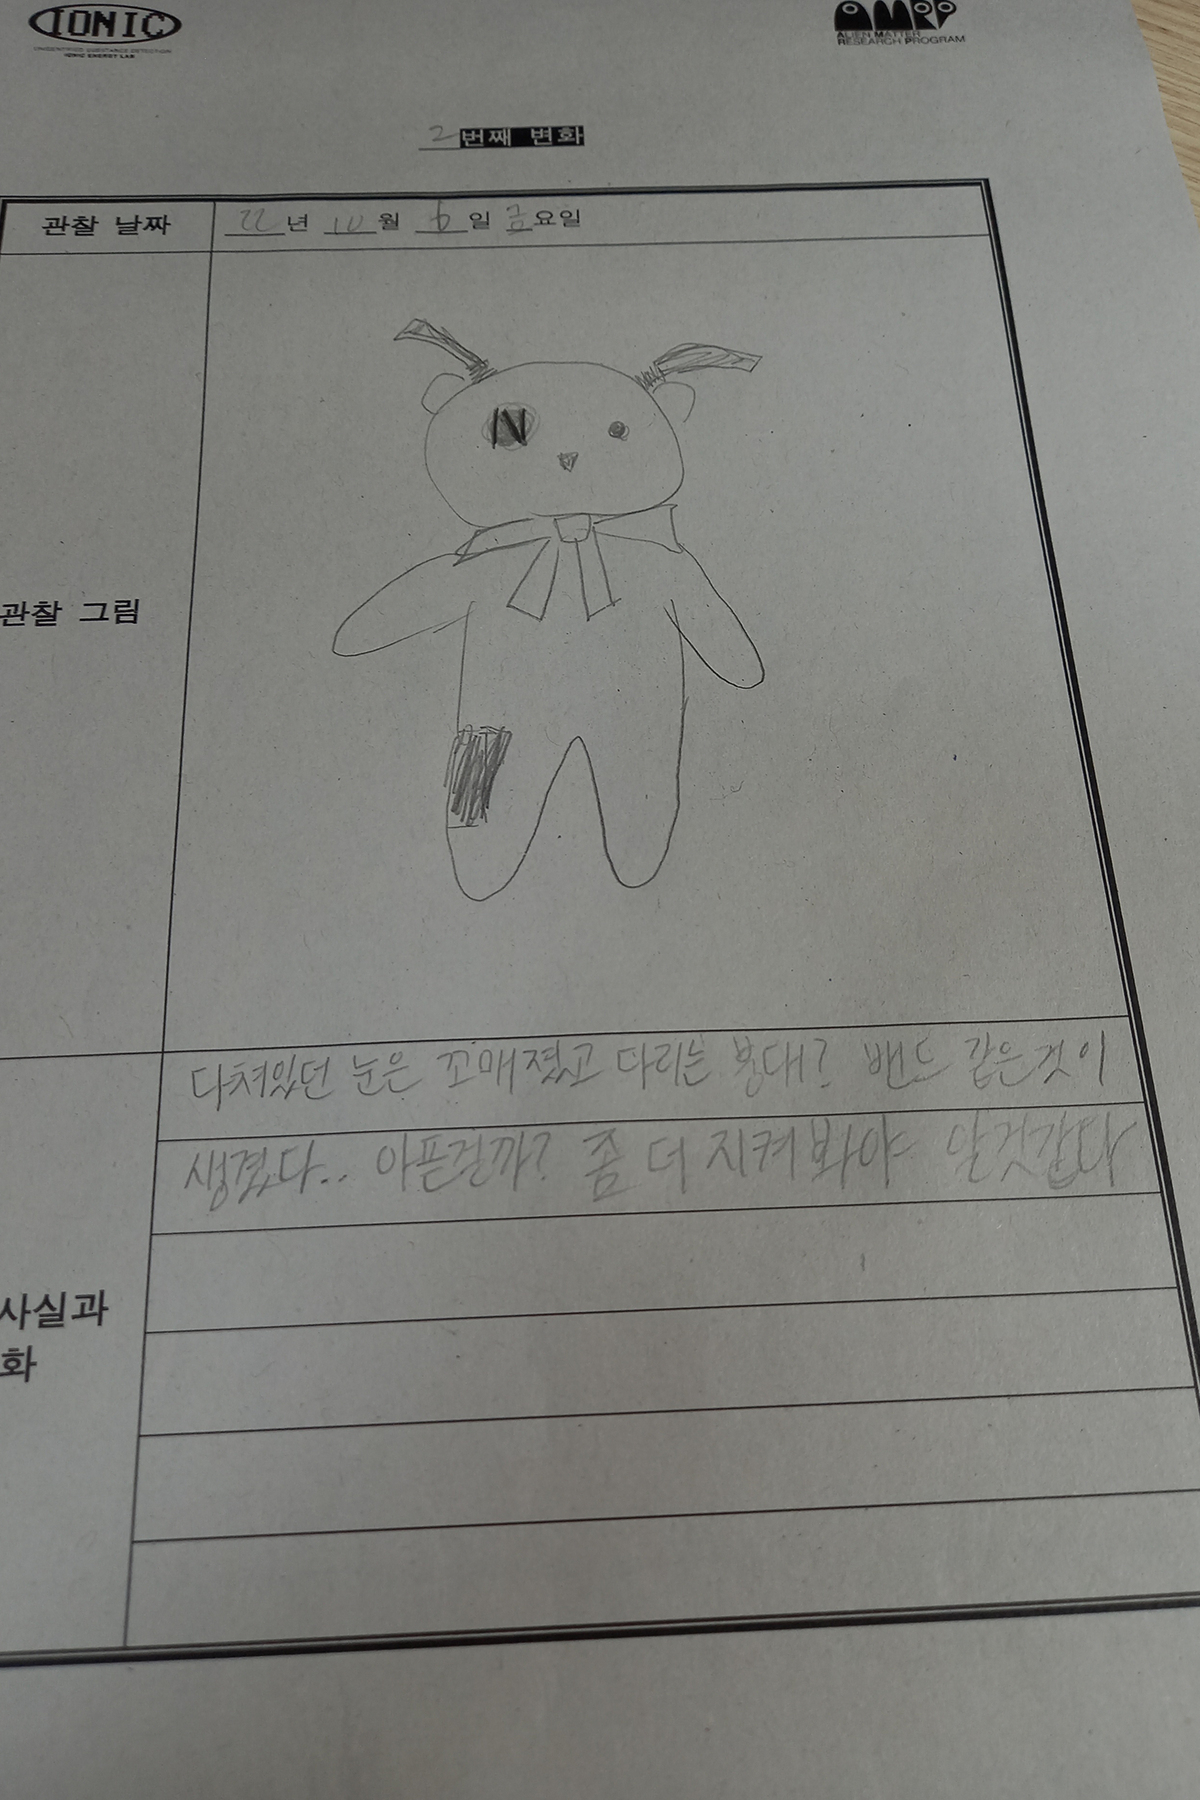 IONIC
UNIDENTIFIED SUBSTANCE DETECTION
IONIC ENERGY LAB
AMRP
ALIEN MATTER
RESEARCH PROGRAM
2번째 변화
관찰 날짜 22년 10월 6일 금요일
관찰 그림
N
다쳐있던 눈은 꼬매졌고 다리는 붕대? 밴드 같은것이
생겼다.. 아픈걸까? 좀 더 지켜봐야 알것같다
사실과
화